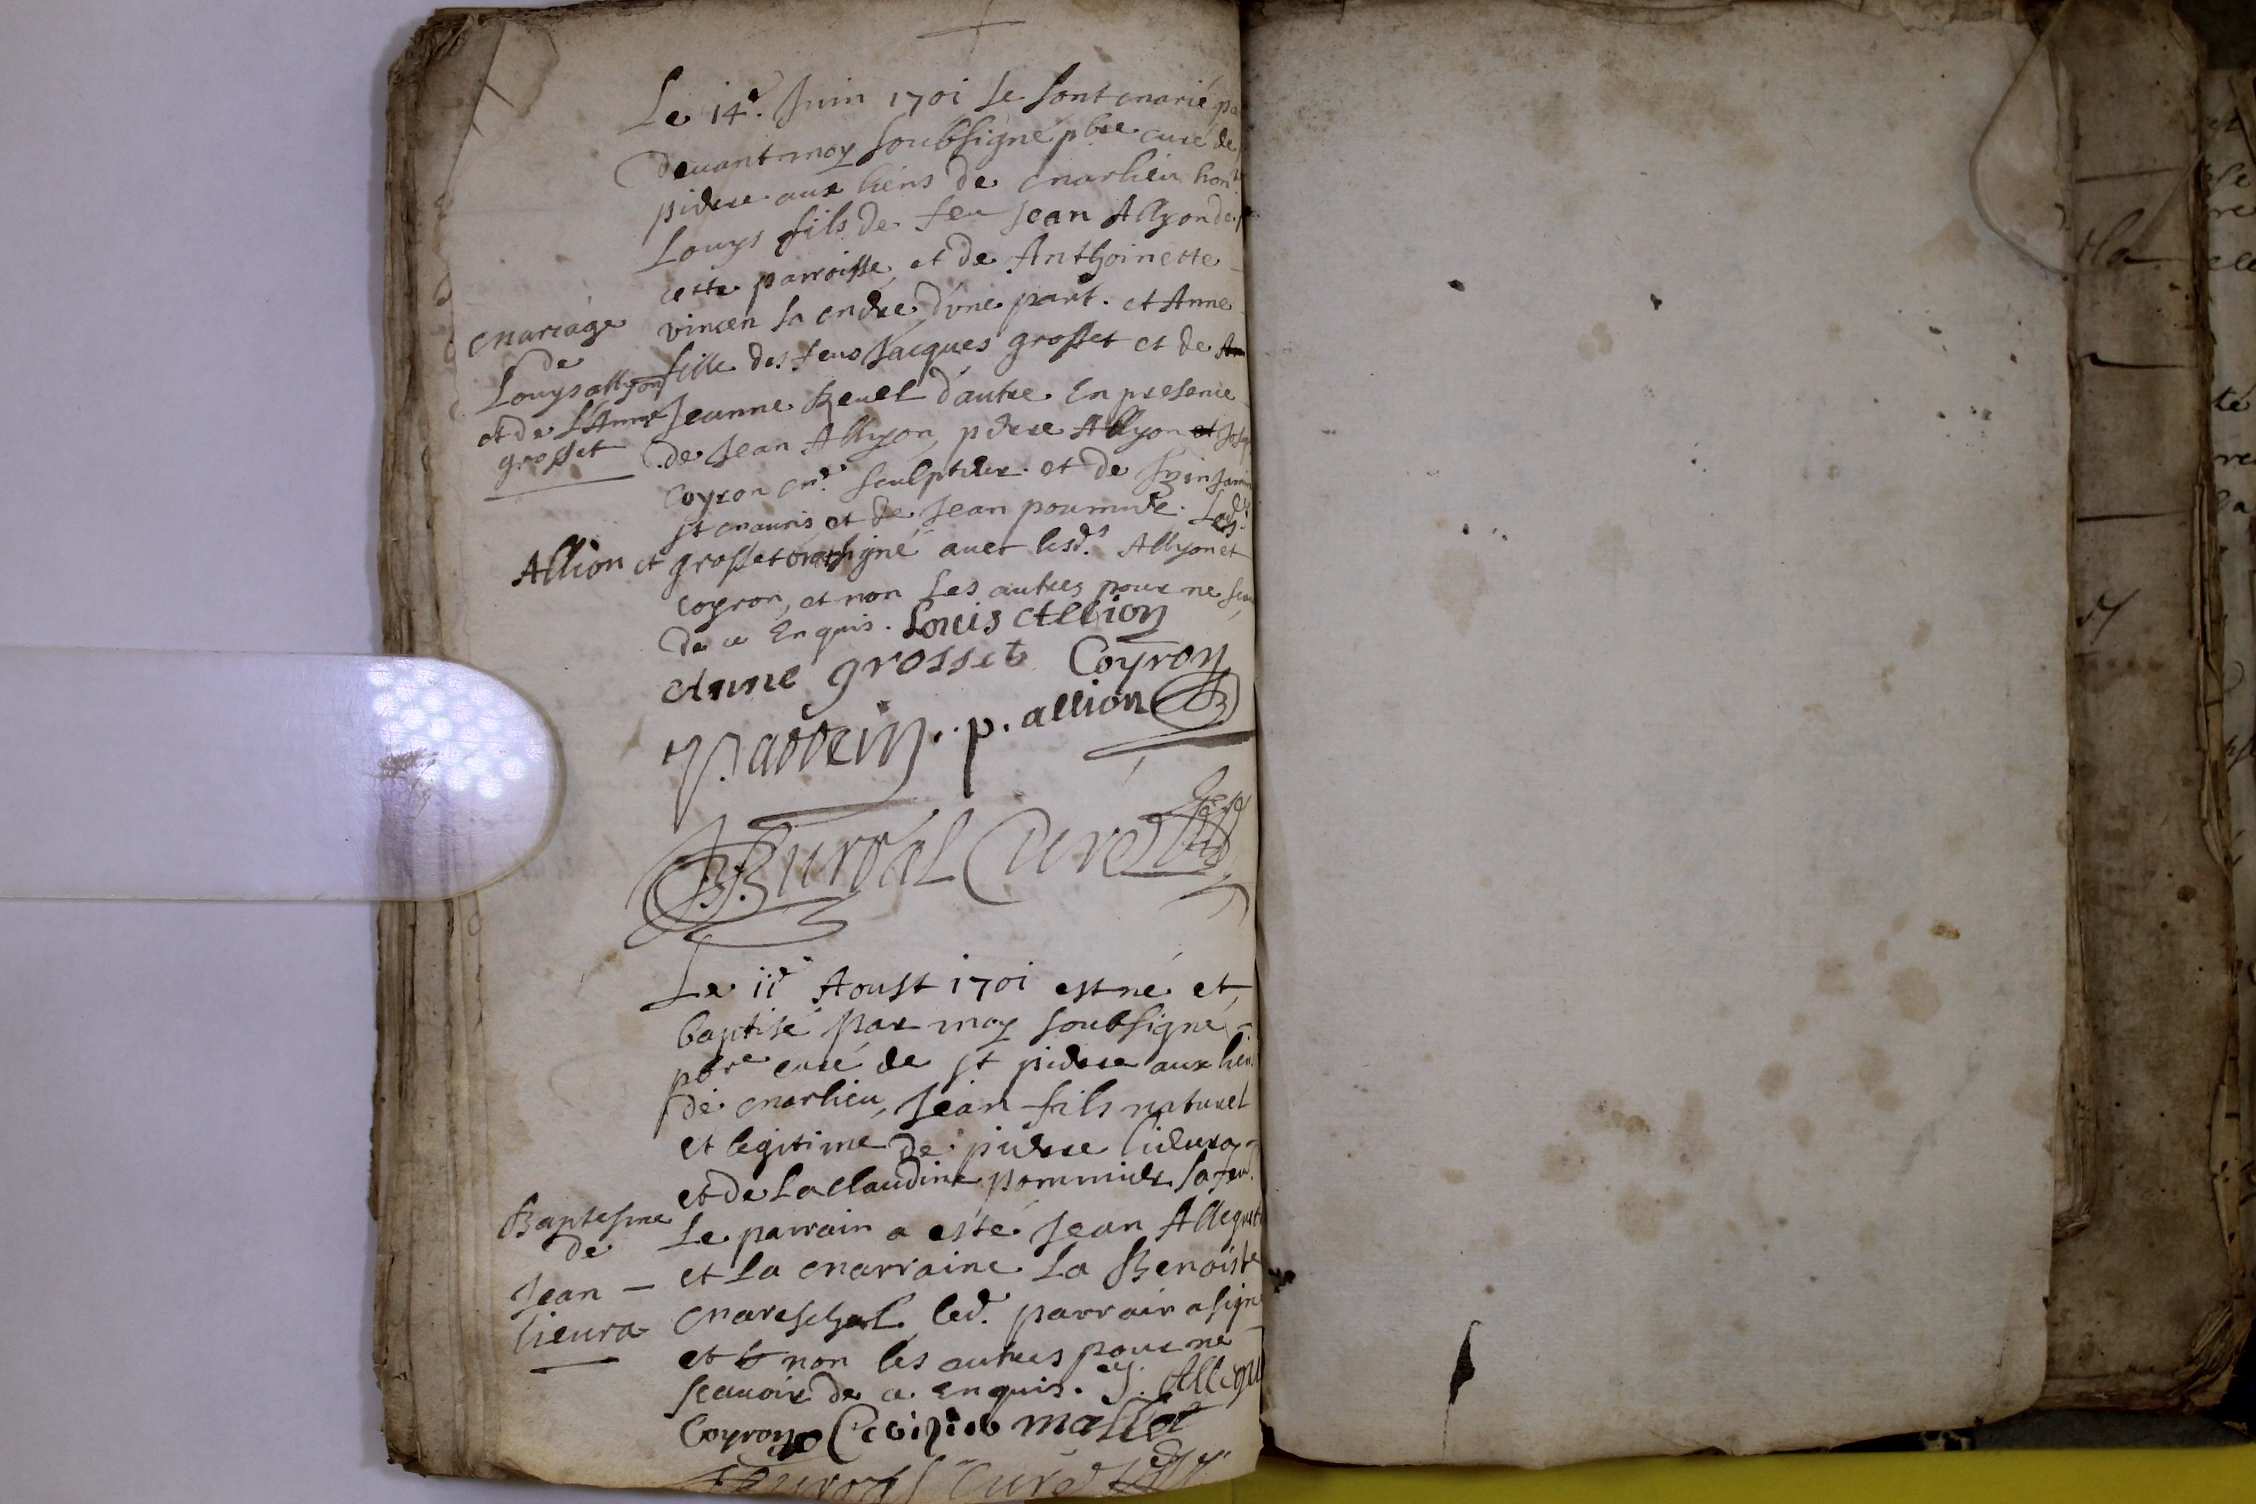 Le 14e. Juin 1701 se sont marié pa
devant moy soubsigné pbre curé de
pierre aux liens de marlieu hon
Louys fils de feu Jean Allyon de
cette parroisse, et de Anthoinette
vincen sa mere d'vne part. et Anne
fille des feus Jacques grosset et de
Jeanne Revel d'autre. En presence
de Jean Allyon, pierre Allyon et
Coyron me. sculpteur. et de
st mauris et de Jean poumire. Lesd.
Allion et grosset ont signé auec lesd.s Allyon et
Coyron, et non les autres pour ne
de ce Enquis. Louis Allion
Anne grosset Coyron
p. allion
Burdal Curé
mariage
de
Louys allyon
et de L'Anne
grosset
Le 11e Aoust 1701 est né et
baptisé par moy soubsigné
pbre curé de st pierre aux lien
de marlieu, Jean fils naturel
et legitime de pierre lieura
et de La claudine pommier sa fem
Le parrain a esté Jean Allegret
et La marraine La Benoiste
mareschal led. parrain a signé
et non les autres pour ne
scauoir de ce enquis. J. Alleg
Coyron mallet
Burdal Curé
Baptesme
de
Jean —
lieura